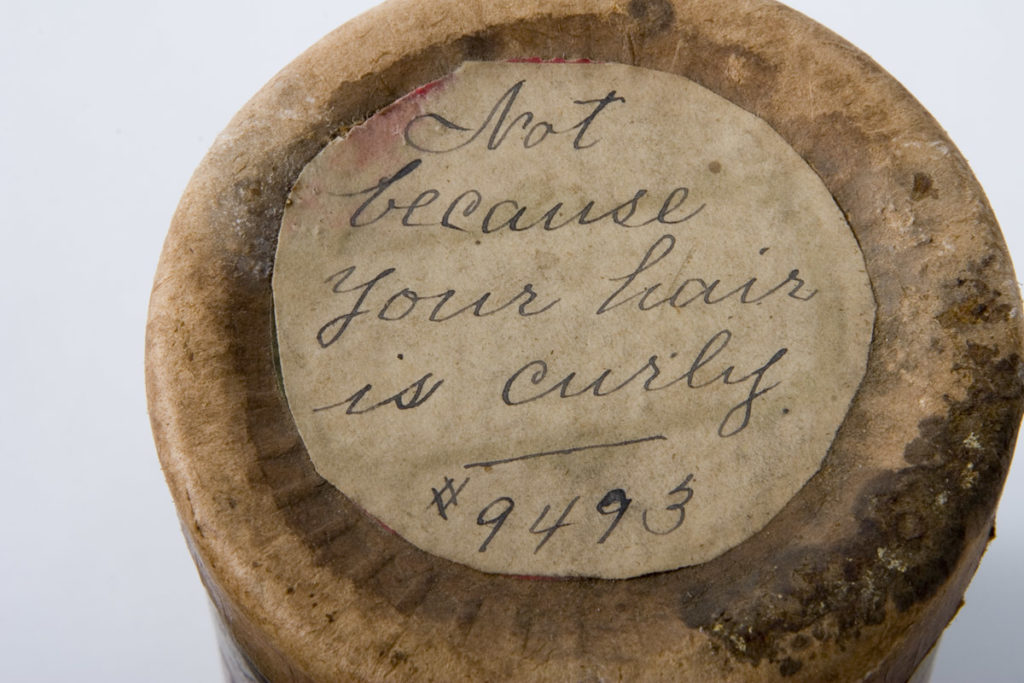 Not
because
Your hair
is curly.
# 9493